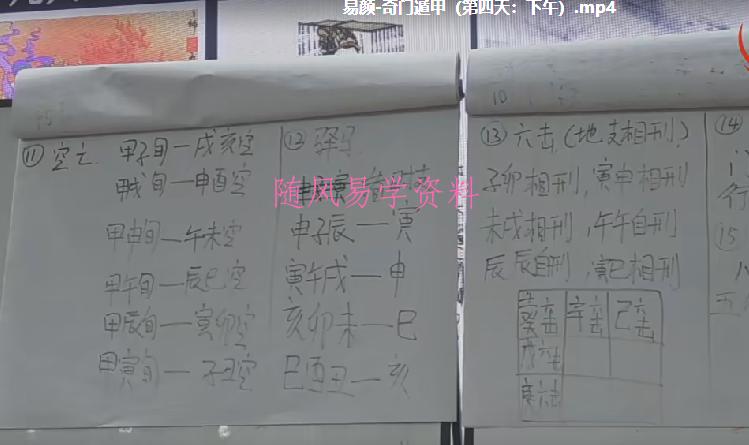 易颜-奇门遁甲（第四天：下午）.mp4
⑪ 空亡 甲子旬一戌亥空
甲戌旬一申酉空
甲申旬一午未空
甲午旬一辰巳空
甲辰旬一寅卯空
甲寅旬一子丑空
⑫ 驿马
申子辰一寅
寅午戌一申
亥卯未一巳
巳酉丑一亥
随风易学资料
10
⑬ 六击（地支相刑）
子卯相刑，寅申相刑
未戌相刑，午午自刑
辰辰自刑，寅巳相刑
癸六击 辛六击 己六击
戊六击
庚六击
⑭
行
⑮
五